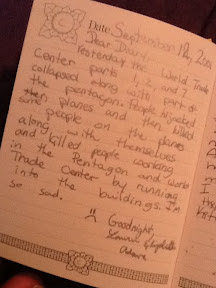 Date September 12, 2001
Dear Diary,
Yesterday the World Trade
Center parts 1, 2, and 7
collapsed along with part of
the pentagon. People hijacked
the planes and then killed
some people on the planes
along with themselves
and killed people working
in the Pentagon and World
Trade Center by running
into the buildings. I'm
so sad.
Goodnight,